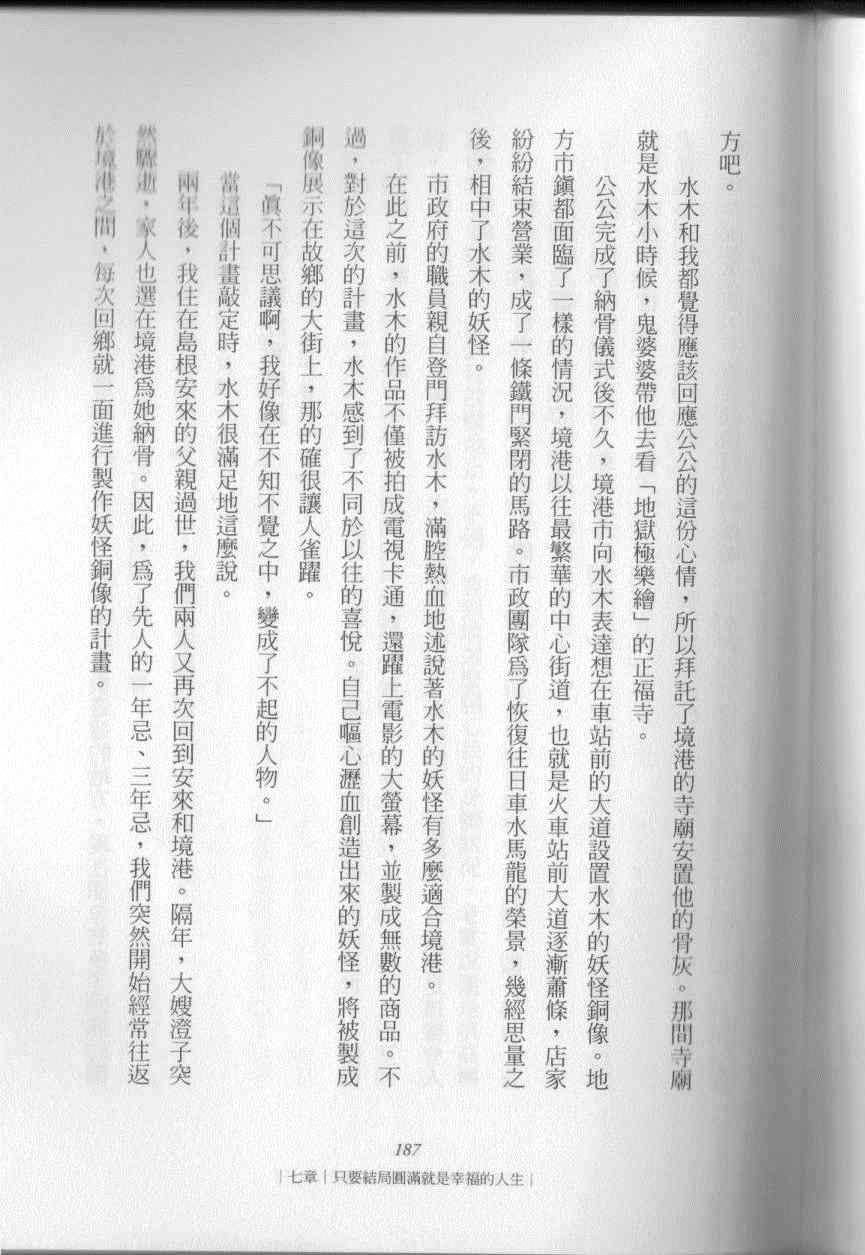 方吧。
水木和我都覺得應該回應公公的這份心情，所以拜託了境港的寺廟安置他的骨灰。那間寺廟
就是水木小時候，鬼婆婆帶他去看「地獄極樂繪」的正福寺。
公公完成了納骨儀式後不久，境港市向水木表達想在車站前的大道設置水木的妖怪銅像。地
方市鎮都面臨了一樣的情況，境港以往最繁華的中心街道，也就是火車站前大道逐漸蕭條，店家
紛紛結束營業，成了一條鐵門緊閉的馬路。市政團隊爲了恢復往日車水馬龍的榮景，幾經思量之
後，相中了水木的妖怪。
市政府的職員親自登門拜訪水木，滿腔熱血地述說著水木的妖怪有多麼適合境港。
在此之前，水木的作品不僅被拍成電視卡通，還躍上電影的大螢幕，並製成無數的商品。不
過，對於這次的計畫，水木感到了不同於以往的喜悅。自己嘔心瀝血創造出來的妖怪，將被製成
銅像展示在故鄉的大街上，那的確很讓人雀躍。
「眞不可思議啊，我好像在不知不覺之中，變成了不起的人物。」
當這個計畫敲定時，水木很滿足地這麼說。
兩年後，我住在島根安來的父親過世，我們兩人又再次回到安來和境港。隔年，大嫂澄子突
然驟逝，家人也選在境港爲她納骨。因此，爲了先人的一年忌、三年忌，我們突然開始經常往返
於境港之間，每次回鄉就一面進行製作妖怪銅像的計畫。
187
｜七章｜只要結局圓滿就是幸福的人生｜